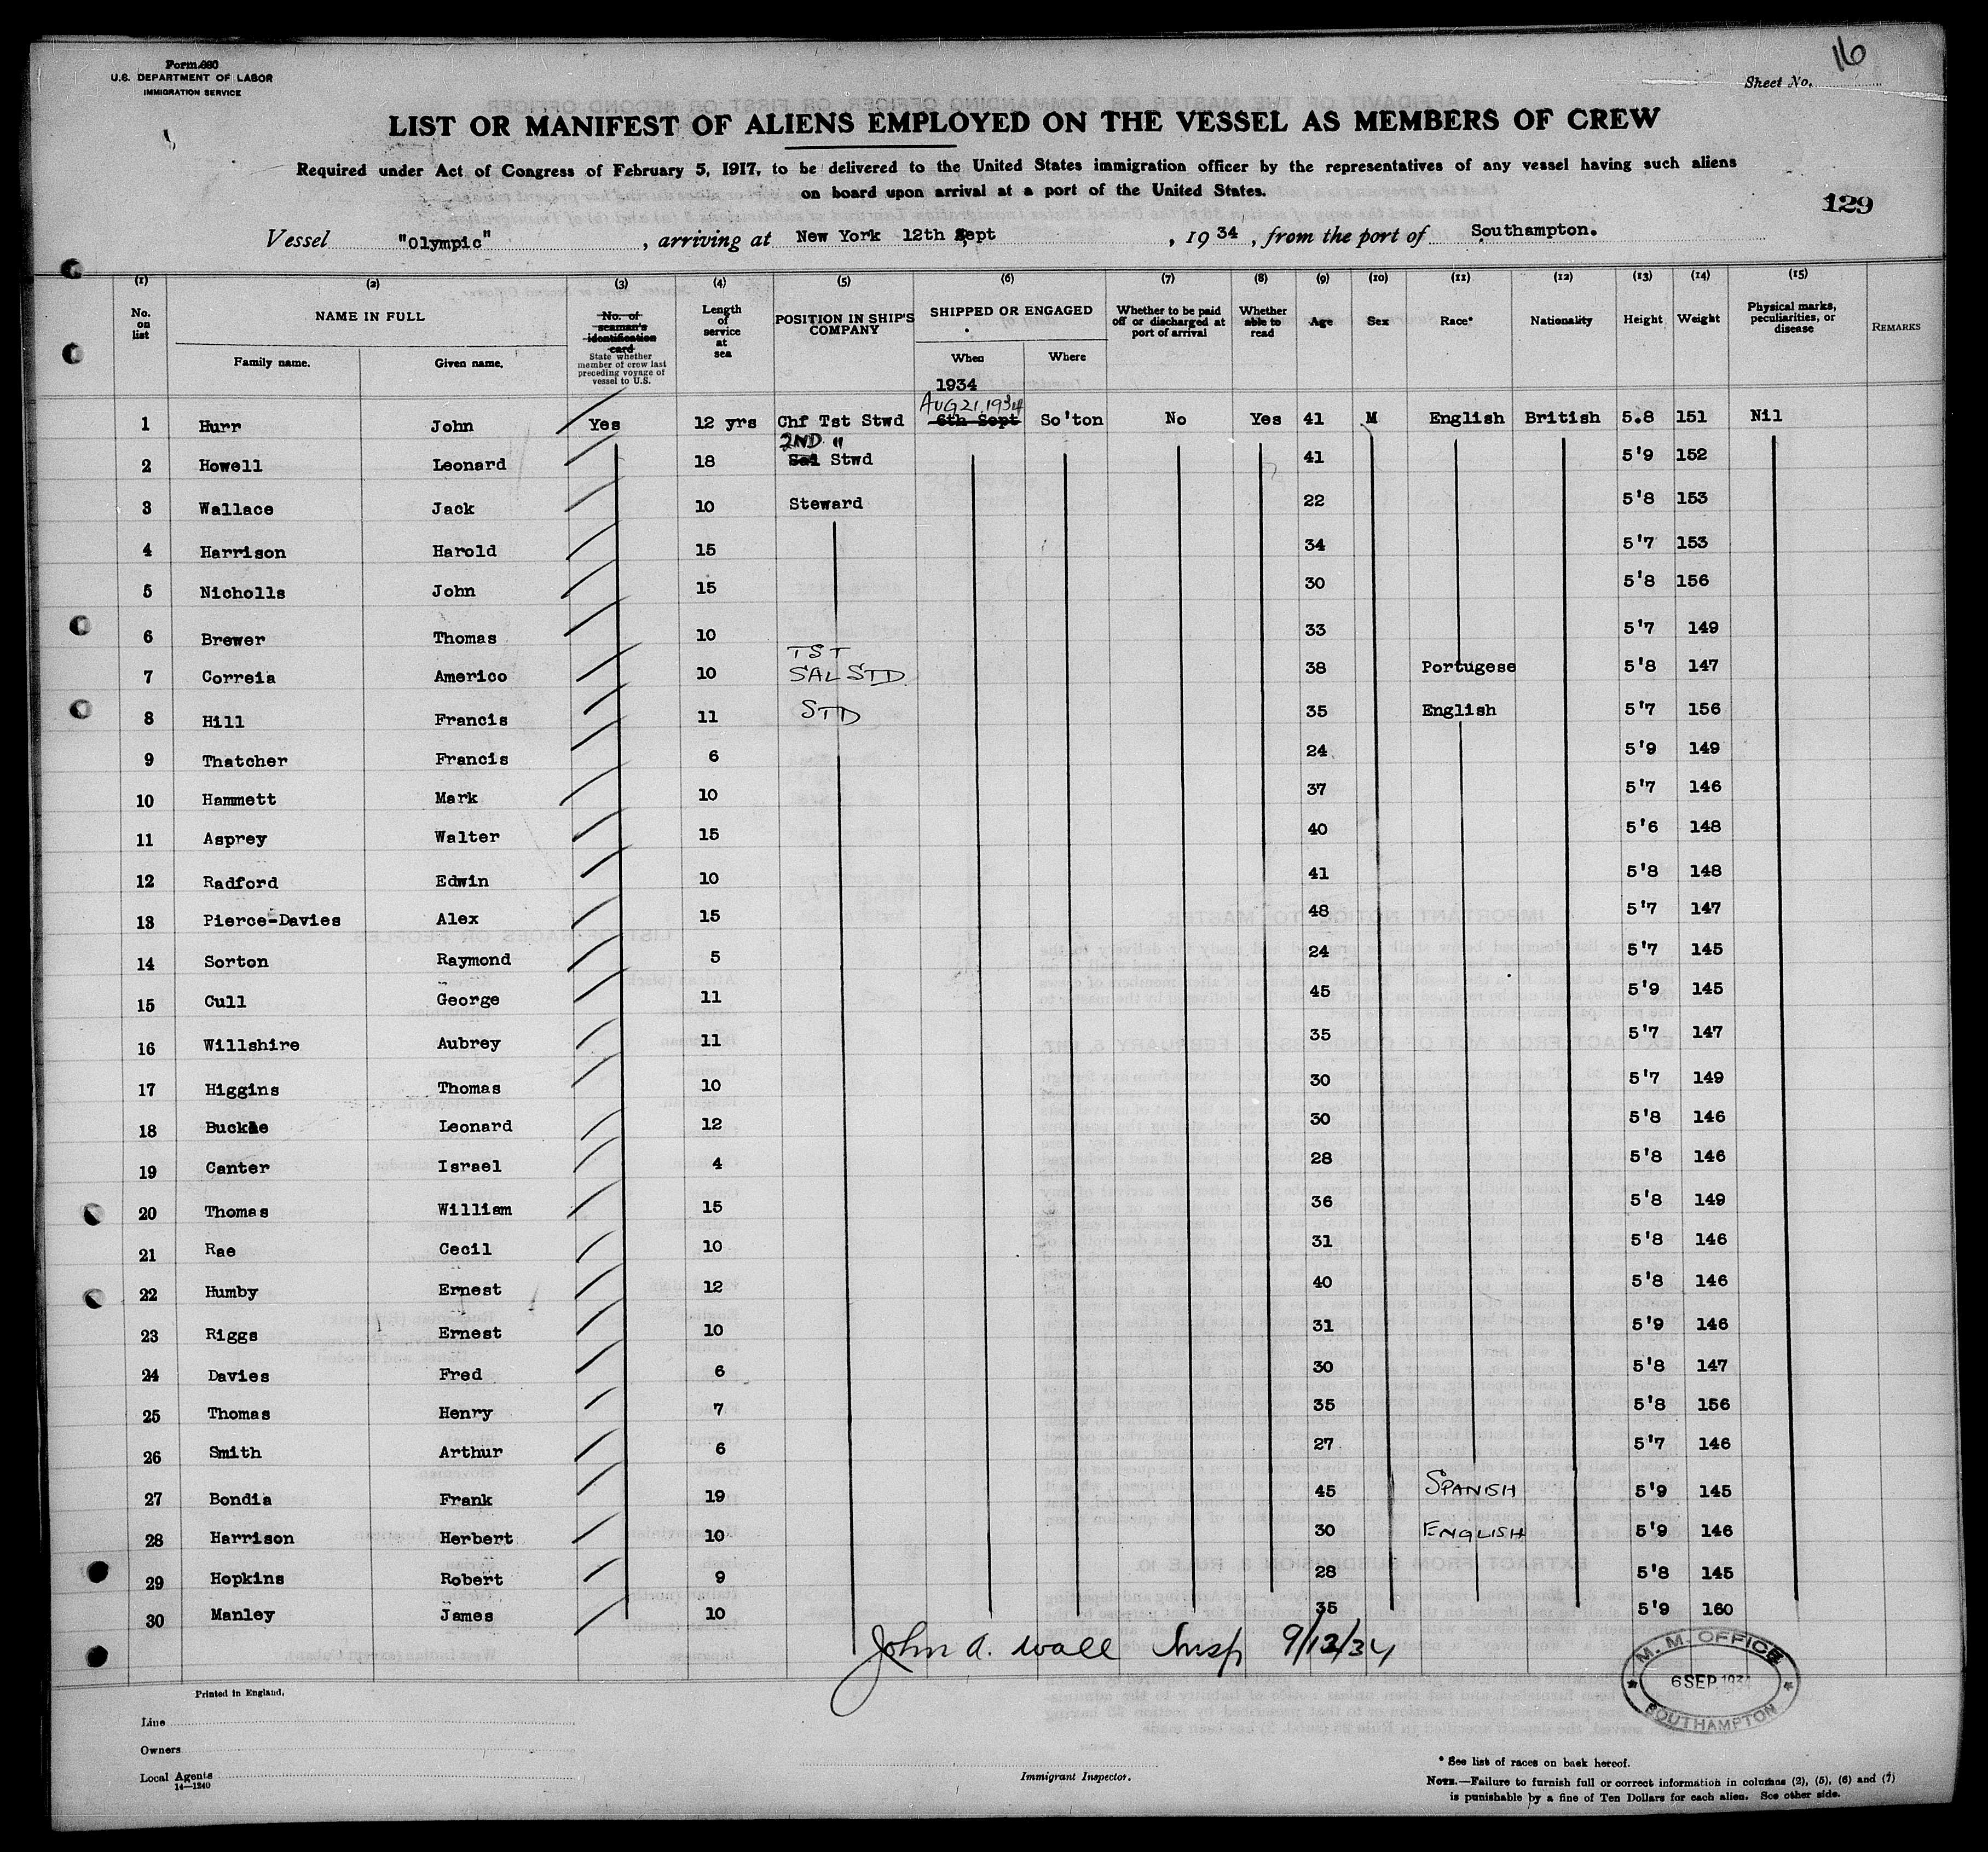 Form 680
U.S. DEPARTMENT OF LABOR
IMMIGRATION SERVICE
Sheet No. 16
LIST OR MANIFEST OF ALIENS EMPLOYED ON THE VESSEL AS MEMBERS OF CREW
Required under Act of Congress of February 5, 1917, to be delivered to the United States immigration officer by the representatives of any vessel having such aliens
on board upon arrival at a port of the United States.
129
Vessel "Olympic", arriving at New York 12th Sept, 1934, from the port of Southampton.
(1) (2) (3) (4) (5) (6) (7) (8) (9) (10) (11) (12) (13) (14) (15)
No. on list
NAME IN FULL
Family name. Given name.
No. of seaman's identification card
State whether member of crew last preceding voyage of vessel to U.S.
Length of service at sea
POSITION IN SHIP'S COMPANY
SHIPPED OR ENGAGED
When Where
1934
Whether to be paid off or discharged at port of arrival
Whether able to read
Age Sex Race* Nationality Height Weight
Physical marks, peculiarities, or disease
REMARKS
AUG 21, 1934
1 Hurr John Yes 12 yrs Chf Tst Stwd 6th Sept So'ton No Yes 41 M English British 5.8 151 Nil
2ND "
2 Howell Leonard 18 Sal Stwd 41 5'9 152
3 Wallace Jack 10 Steward 22 5'8 153
4 Harrison Harold 15 34 5'7 153
5 Nicholls John 15 30 5'8 156
6 Brewer Thomas 10 33 5'7 149
TST
7 Correia Americo 10 SAL STD. 38 Portugese 5'8 147
8 Hill Francis 11 STD 35 English 5'7 156
9 Thatcher Francis 6 24 5'9 149
10 Hammett Mark 10 37 5'7 146
11 Asprey Walter 15 40 5'6 148
12 Radford Edwin 10 41 5'8 148
13 Pierce-Davies Alex 15 48 5'7 147
14 Sorton Raymond 5 24 5'7 145
15 Cull George 11 45 5'9 145
16 Willshire Aubrey 11 35 5'7 147
17 Higgins Thomas 10 30 5'7 149
18 Buckle Leonard 12 30 5'8 146
19 Canter Israel 4 28 5'8 146
20 Thomas William 15 36 5'8 149
21 Rae Cecil 10 31 5'8 146
22 Humby Ernest 12 40 5'8 146
23 Riggs Ernest 10 31 5'9 146
24 Davies Fred 6 30 5'8 147
25 Thomas Henry 7 35 5'8 156
26 Smith Arthur 6 27 5'7 146
27 Bondia Frank 19 45 SPANISH 5'9 145
28 Harrison Herbert 10 30 ENGLISH 5'9 146
29 Hopkins Robert 9 28 5'8 145
30 Manley James 10 35 5'9 160
John A. Wall Insp 9/12/34
M. M. OFFICE
6 SEP 1934
SOUTHAMPTON
Printed in England.
Line
Owners
Local Agents
14—1240
Immigrant Inspector.
* See list of races on back hereof.
NOTE.—Failure to furnish full or correct information in columns (2), (5), (6) and (7)
is punishable by a fine of Ten Dollars for each alien. See other side.